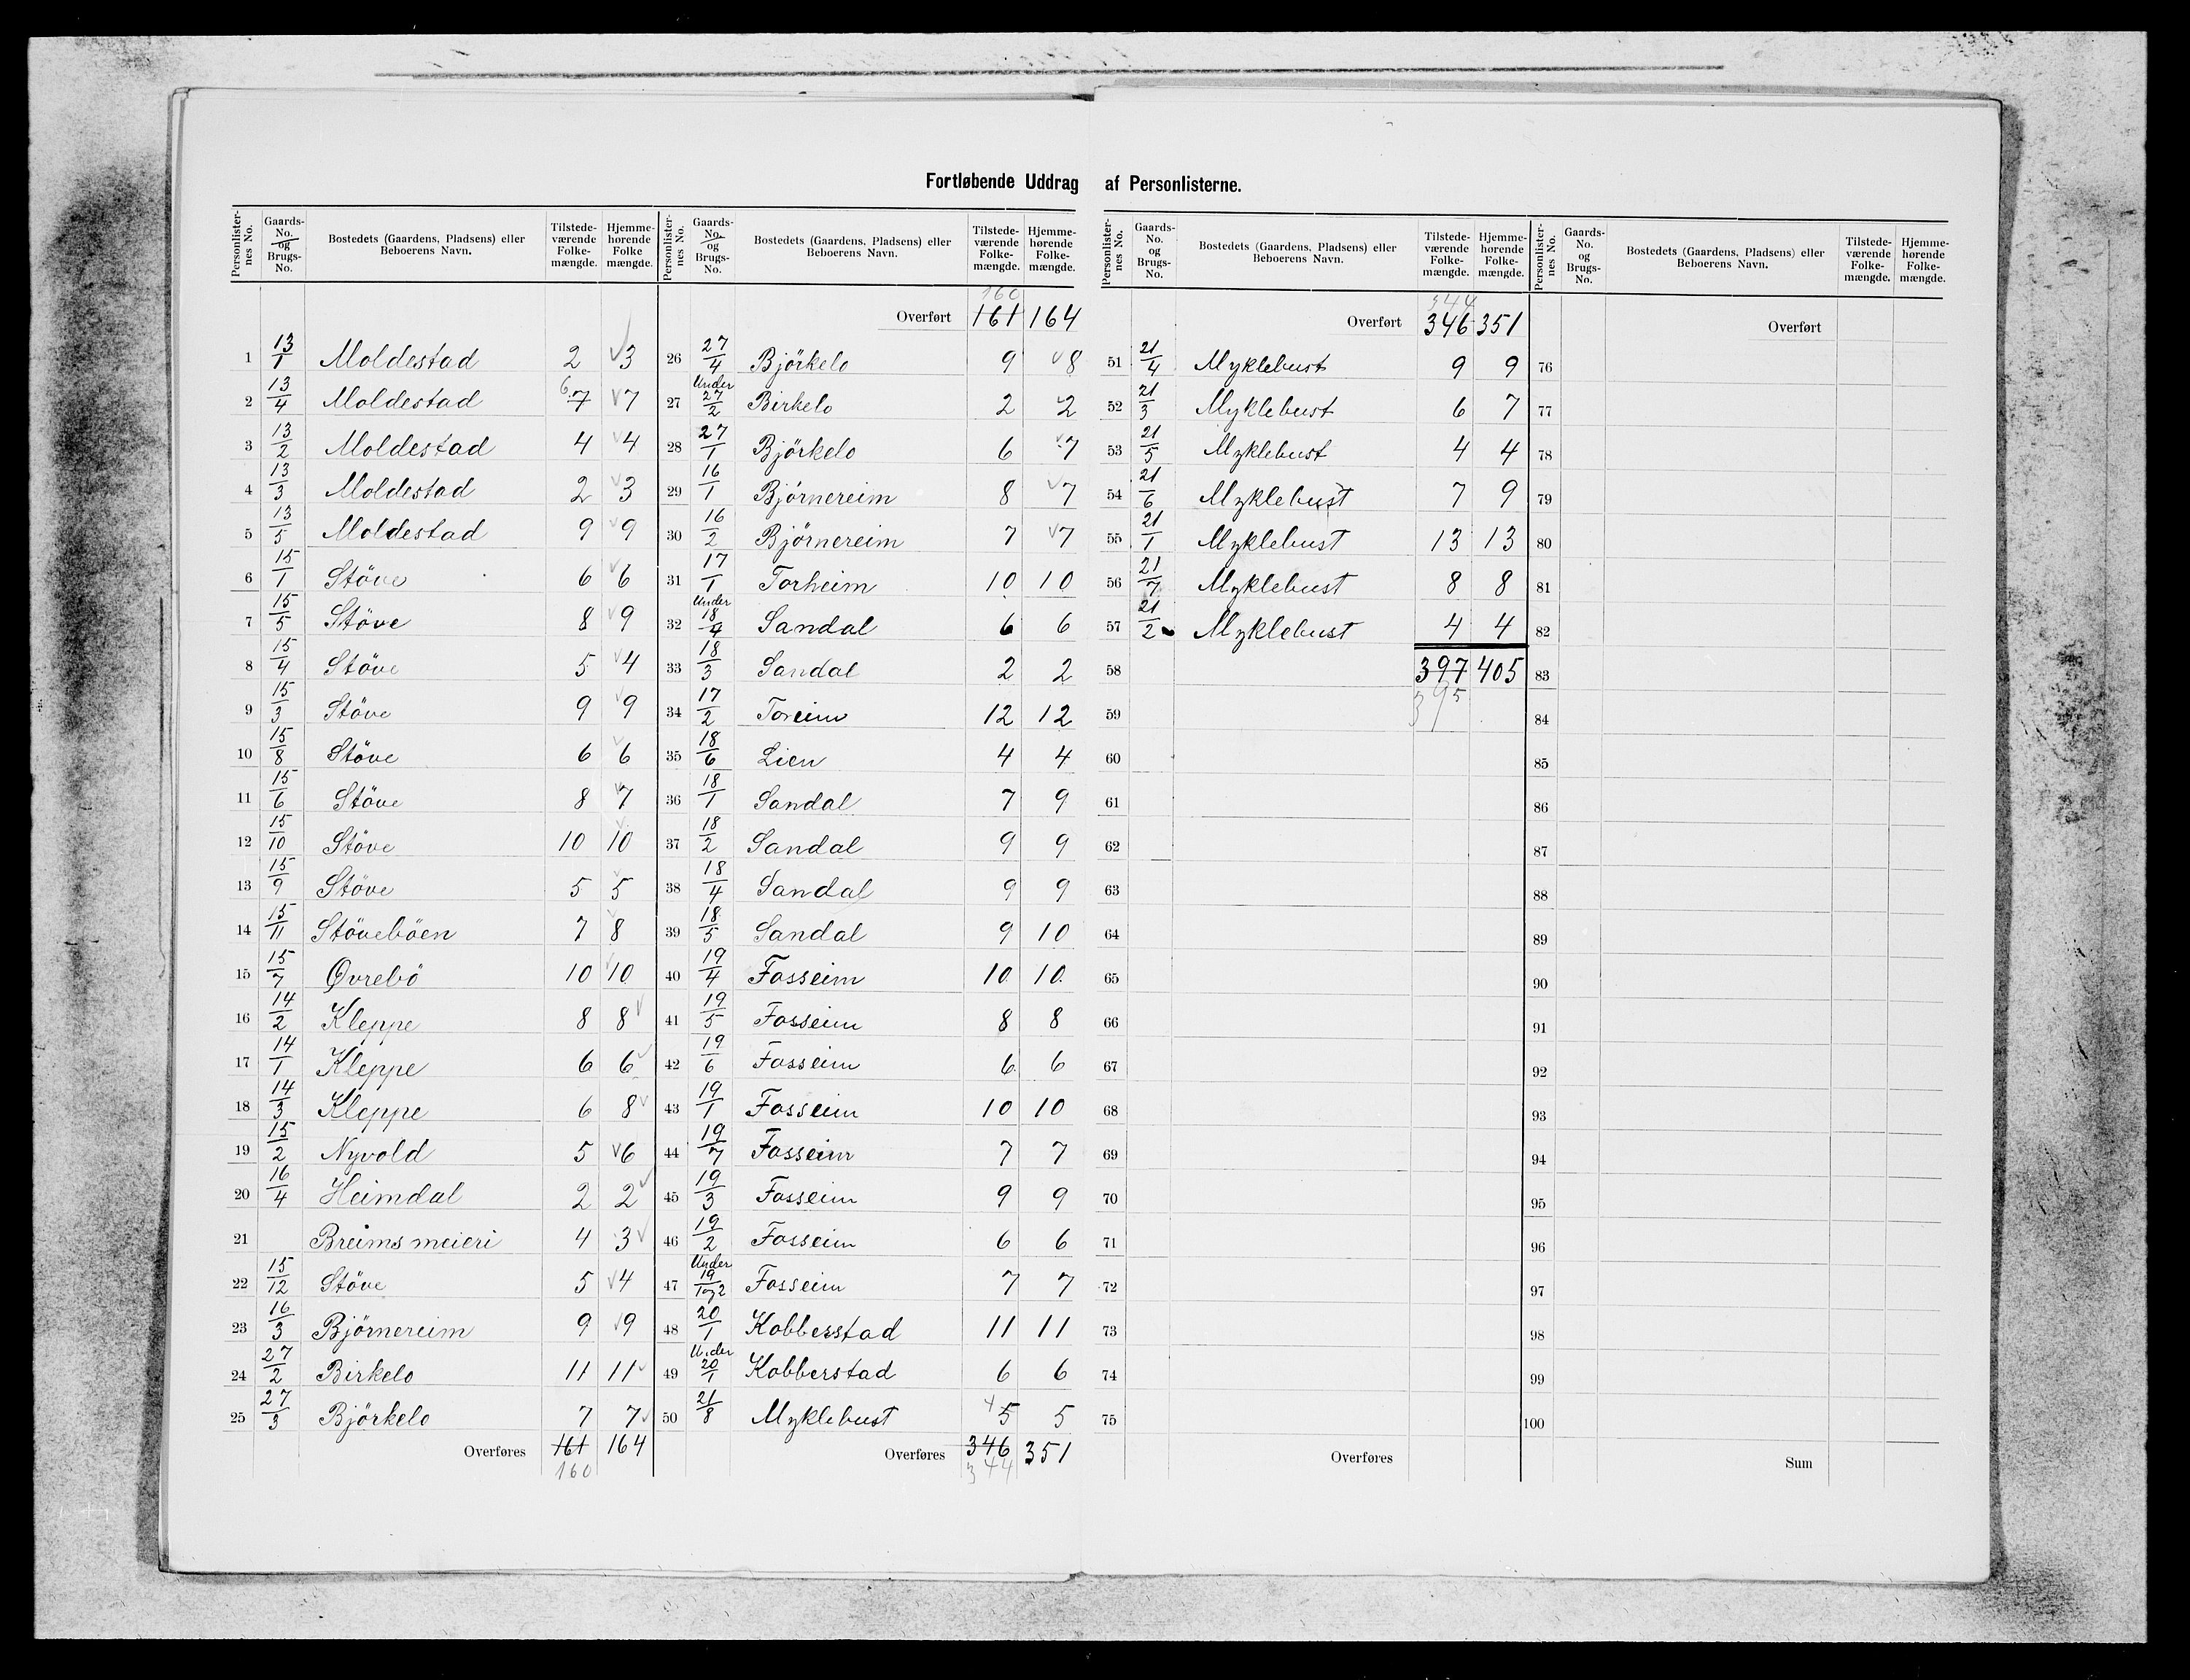 Fortløbende Uddrag af Personlisterne.
Personlister-nes No. | Gaards-No. og Brugs-No. | Bostedets (Gaardens, Pladsens) eller Beboerens Navn. | Tilstede-værende Folke-mængde. | Hjemme-hørende Folke mængde.
1 13/1 Moldestad 2 3
2 13/4 Moldestad 6 7 7
3 13/2 Moldestad 4 4
4 13/3 Moldestad 2 3
5 13/5 Moldestad 9 9
6 15/1 Støve 6 6
7 15/5 Støve 8 9
8 15/4 Støve 5 4
9 15/3 Støve 9 9
10 15/8 Støve 6 6
11 15/6 Støve 8 7
12 15/10 Støve 10 10
13 15/9 Støve 5 5
14 15/11 Støveböen 7 8
15 15/7 Øvrebö 10 10
16 14/2 Kleppe 8 8
17 14/1 Kleppe 6 6
18 14/3 Kleppe 6 8
19 15/2 Nyvold 5 6
20 16/4 Heimdal 2 2
21 Breims meieri 4 3
22 15/12 Støve 5 4
23 16/3 Björnereim 9 9
24 27/2 Birkelo 11 11
25 27/3 Björkelo 7 7
Overføres 161 164
160
Personlister-nes No. | Gaards-No. og Brugs-No. | Bostedets (Gaardens, Pladsens) eller Beboerens Navn. | Tilstede-værende Folke-mængde. | Hjemme-hørende Folke-mængde.
160
Overført 161 164
26 27/4 Björkelo 9 8
27 Under 27/2 Birkelo 2 2
28 27/1 Björkelo 6 7
29 16/1 Björnereim 8 7
30 16/2 Björnereim 7 7
31 17/1 Torheim 10 10
32 Under 18/4 Sandal 6 6
33 18/3 Sandal 2 2
34 17/2 Toreim 12 12
35 18/6 Lien 4 4
36 18/1 Sandal 7 9
37 18/2 Sandal 9 9
38 18/4 Sandal 9 9
39 18/5 Sandal 9 10
40 19/4 Fosseim 10 10
41 19/5 Fosseim 8 8
42 19/6 Fosseim 6 6
43 19/1 Fosseim 10 10
44 19/7 Fosseim 7 7
45 19/3 Fosseim 9 9
46 19/2 Fosseim 6 6
47 Under 19/1og2 Fosseim 7 7
48 20/1 Kobberstad 11 11
49 Under 20/1 Kobberstad 6 6
50 21/8 Myklebust 4 5 5
Overføres 346 351
344
Personlister-nes No. | Gaards-No. og Brugs-No. | Bostedets (Gaardens, Pladsens) eller Beboerens Navn. | Tilstede-værende Folke-mængde. | Hjemme-hørende Folke-mængde.
344
Overført 346 351
51 21/4 Myklebust 9 9
52 21/3 Myklebust 6 7
53 21/5 Myklebust 4 4
54 21/6 Myklebust 7 9
55 21/1 Myklebust 13 13
56 21/7 Myklebust 8 8
57 21/2 Myklebust 4 4
58 397 405
59 395
60
61
62
63
64
65
66
67
68
69
70
71
72
73
74
75
Overføres
Personlister-nes No. | Gaards-No. og Brugs-No. | Bostedets (Gaardens, Pladsens) eller Beboerens Navn. | Tilstede-værende Folke-mængde. | Hjemme-hørende Folke-mængde.
Overført
76
77
78
79
80
81
82
83
84
85
86
87
88
89
90
91
92
93
94
95
96
97
98
99
100
Sum